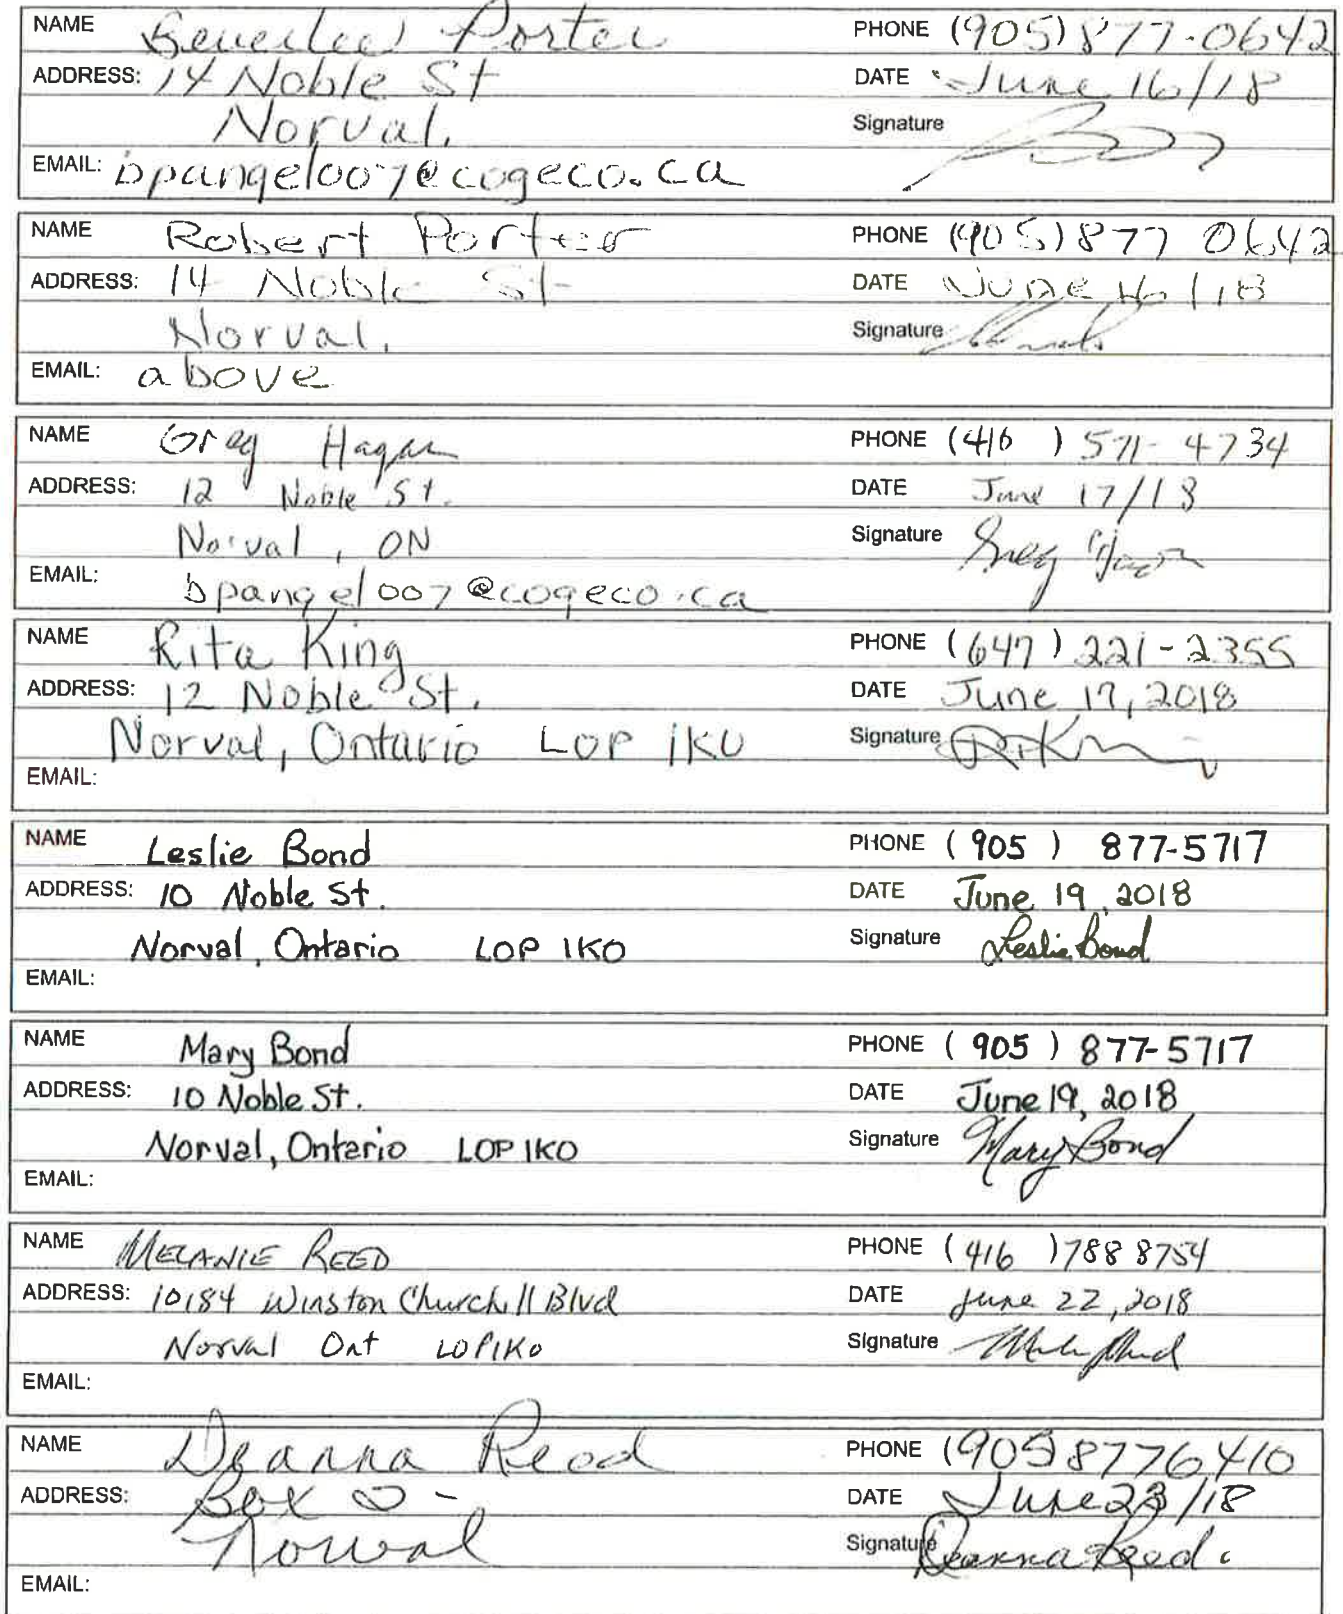 NAME Beverlee Porter PHONE (905) 877-0642
ADDRESS: 14 Noble St DATE June 16/18
Norval, Signature
EMAIL: bpangel007@cogeco.ca
NAME Robert Porter PHONE (905) 877 0642
ADDRESS: 14 Noble St DATE June 16/18
Norval, Signature
EMAIL: above
NAME Greg Hagan PHONE (416 ) 571-4734
ADDRESS: 12 Noble St. DATE June 17/18
Norval, ON Signature
EMAIL: bpangel007@cogeco.ca
NAME Rita King PHONE (647) 221-2355
ADDRESS: 12 Noble St. DATE June 17, 2018
Norval, Ontario L0P 1K0 Signature
EMAIL:
NAME Leslie Bond PHONE ( 905 ) 877-5717
ADDRESS: 10 Noble St. DATE June 19, 2018
Norval, Ontario L0P 1K0 Signature Leslie Bond
EMAIL:
NAME Mary Bond PHONE ( 905 ) 877-5717
ADDRESS: 10 Noble St. DATE June 19, 2018
Norval, Ontario L0P 1K0 Signature Mary Bond
EMAIL:
NAME MELANIE REED PHONE ( 416 ) 788 8754
ADDRESS: 10184 Winston Churchill Blvd DATE June 22, 2018
Norval Ont L0P1K0 Signature
EMAIL:
NAME Deanna Reed PHONE (905 8776410
ADDRESS: Box DATE June 23/18
Norval Signature Deanna Reed.
EMAIL: